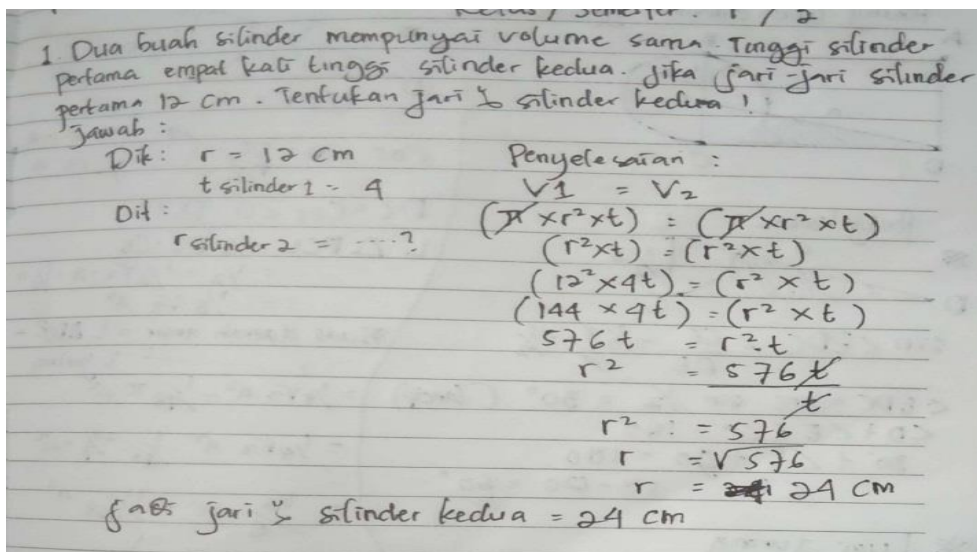 1. Dua buah silinder mempunyai volume sama. Tinggi silinder
pertama empat kali tinggi silinder kedua. Jika jari-jari silinder
pertama 12 cm. Tentukan jari ² silinder kedua !
Jawab :
Dik : r = 12 cm
t silinder 1 = 4
Dit :
r silinder 2 = ....?
Penyelesaian :
V1 = V2
(π × r² × t) = (π × r² × t)
(r² × t) = (r² × t)
(12² × 4t) = (r² × t)
(144 × 4t) = (r² × t)
576 t = r².t
r² = 576 t
t
r² = 576
r = √576
r = 24 cm
jari ² silinder kedua = 24 cm